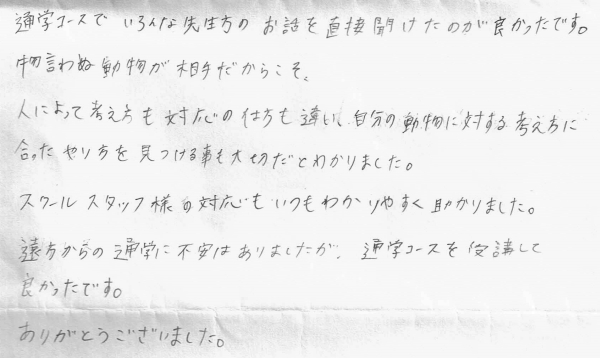 通学コースで いろんな先生方の お話を直接聞けたのが良かったです。
物言わぬ動物が相手だからこそ、
人によって考え方も対応の仕方も違い、自分の動物に対する考え方に
合ったやり方を見つける事も大切だとわかりました。
スクールスタッフ様の対応もいつもわかりやすく助かりました。
遠方からの通学に不安はありましたが、通学コースを受講して
良かったです。
ありがとうございました。